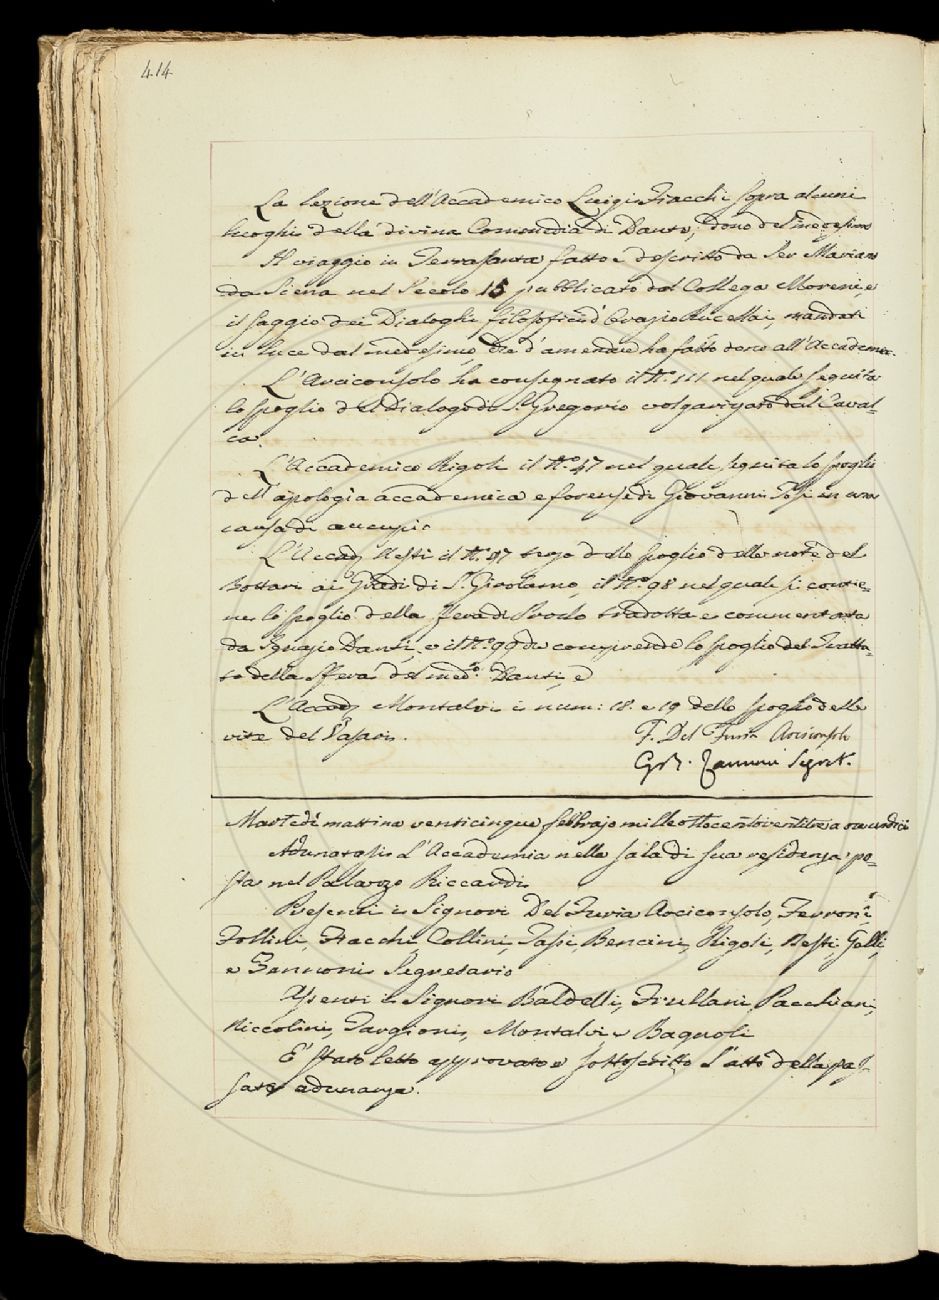 414
La lezione dell'Accademico Luigi Fiacchi sopra alcuni
luoghi della divina Commedia di Dante, dono del medesimo
Il viaggio in Terrasanta fatto e descritto da Ser Mariano
da Siena nel Secolo 15 pubblicato dal Collega Moreni, e
il saggio dei Dialoghi filosofici d'Orazio Rucellai, mandati
in luce dal medesimo, che d'amendue ha fatto dono all'Accademia.
L'Arciconsolo ha consegnato il N.º 111 nel quale seguita
lo spoglio del Dialogo di S. Gregorio volgarizzato dal Caval=
ca.
L'Accademico Rigoli il N.º 47 nel quale seguita lo spoglio
dell'apologia accademica e forense di Giovanni Tosi in una
causa di aucupio
L'Accad. Nesti il N.º 97 dello spoglio delle note del
Bottari ai Gradi di S. Girolamo, il N.º 98 nel quale si contie=
ne lo spoglio della Sfera di Proclo tradotta e commentata
da Ignazio Danti, e il N.º 99 che comprende lo spoglio del Tratta=
to della Sfera del med.º Danti, e
L'Accad. Montalvi i num: 18. e 19 dello spoglio delle
vite del Vasari.
F. Del Furia Arciconsolo
G. B. Zannoni Segret.
Martedì mattina venticinque febbrajo mille ottocentoventitre a ore undici
Adunatasi L'Accademia nella sala di sua residenza po=
sta nel Palazzo Riccardi
Presenti i Signori Del Furia Arciconsolo, Ferroni,
Follini, Fiacchi, Collini, Tassi, Bencini, Rigoli, Nesti, Gelli,
e Zannoni Segretario
Assenti i Signori Baldelli, Frullani, Pacchiani,
Niccolini, Targioni, Montalvi e Bagnoli
E' stato letto approvato e sottoscritto l'atto della pas=
sata adunanza.